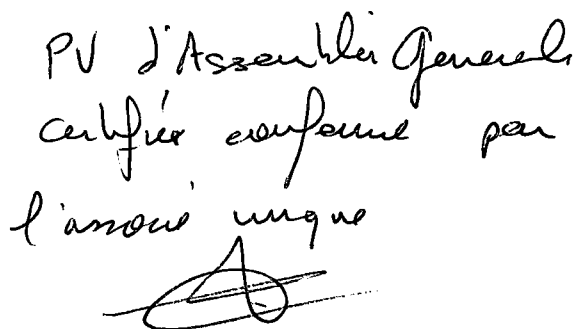 PV d'Assemblée Generale
certifiée conforme par
l'associé unique